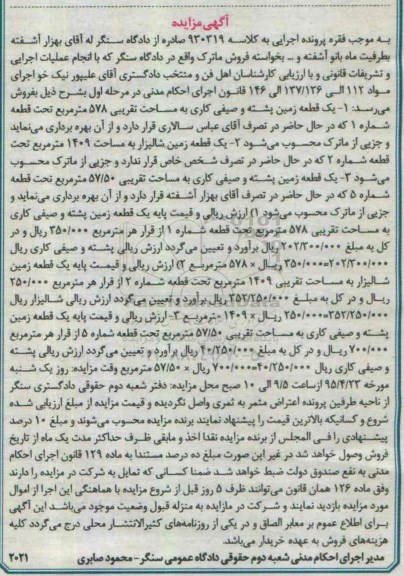 آگهی مزایده
به موجب فقره پرونده اجرایی به کلاسه ۹۳۰۳۱۹ صادره از دادگاه سنگر له آقای بهزار آشفته
بطرفیت ماه بانو آشفته و ... بخواسته فروش ماترک واقع در دادگاه سنگر که با انجام عملیات اجرایی
و تشریفات قانونی و با ارزیابی کارشناسان اهل فن و منتخب دادگستری آقای علیپور نیک خو اجرای
مواد ۱۱۲ الی ۱۳۷/۱۲۶ الی ۱۴۶ قانون اجرای احکام مدنی در مرحله اول بشرح ذیل بفروش
می‌رسد: ۱- یک قطعه زمین پشته و صیفی کاری به مساحت تقریبی ۵۷۸ مترمربع تحت قطعه
شماره ۱ که در حال حاضر در تصرف آقای عباس سالاری قرار دارد و از آن بهره برداری می‌نماید
و جزیی از ماترک محسوب می‌شود ۲- یک قطعه زمین شالیزار به مساحت ۱۴۰۹ مترمربع تحت
قطعه شماره ۲ که در حال حاضر در تصرف شخص خاص قرار ندارد و جزیی از ماترک محسوب
می‌شود ۳- یک قطعه زمین پشته و صیفی کاری به مساحت تقریبی ۵۷/۵۰ مترمربع تحت قطعه
شماره ۵ که در حال حاضر در تصرف آقای بهزار آشفته قرار دارد و از آن بهره برداری می‌نماید و
جزیی از ماترک محسوب می‌شود ۱) ارزش ریالی و قیمت پایه یک قطعه زمین پشته و صیفی کاری
به مساحت تقریبی ۵۷۸ مترمربع تحت قطعه شماره ۱ از قرار هر مترمربع ۳۵۰/۰۰۰ ریال و در
کل به مبلغ ۲۰۲/۳۰۰/۰۰۰ ریال برآورد و تعیین می‌گردد ارزش ریالی پشته و صیفی کاری ریال
۲۰۲/۳۰۰/۰۰۰=۳۵۰/۰۰۰ ریال × ۵۷۸ مترمربع ۲) ارزش ریالی و قیمت پایه یک قطعه زمین
شالیزار به مساحت تقریبی ۱۴۰۹ مترمربع تحت قطعه شماره ۲ از قرار هر مترمربع ۲۵۰/۰۰۰
ریال و در کل به مبلغ ۳۵۲/۲۵۰/۰۰۰ ریال برآورد و تعیین می‌گردد ارزش ریالی شالیزار ریال
۳۵۲/۲۵۰/۰۰۰=۲۵۰/۰۰۰ ریال × ۱۴۰۹ مترمربع ۳- ارزش ریالی و قیمت پایه یک قطعه زمین
پشته و صیفی کاری به مساحت تقریبی ۵۷/۵۰ مترمربع تحت قطعه شماره ۵ از قرار هر مترمربع
۷۰۰/۰۰۰ ریال و در کل به مبلغ ۴۰/۲۵۰/۰۰۰ ریال برآورد و تعیین می‌گردد ارزش ریالی پشته
و صیفی کاری ریال ۴۰/۲۵۰/۰۰۰=۷۰۰/۰۰۰ ریال × ۵۷/۵۰ مترمربع وقت مزایده: روز یک شنبه
مورخه ۹۵/۴/۲۳ ازساعت ۹/۵ الی ۱۰ صبح محل مزایده: دفتر شعبه دوم حقوقی دادگستری سنگر
از ناحیه طرفین پرونده اعتراض مثمر به ثمری واصل نگردیده و قیمت مزایده از مبلغ ارزیابی شده
شروع و کسانیکه بالاترین قیمت را پیشنهاد نمایند برنده مزایده محسوب می‌شوند و مبلغ ۱۰ درصد
پیشنهادی را فی المجلس از برنده مزایده نقدا اخذ و مابقی ظرف حداکثر مدت یک ماه از تاریخ
فروش وصول خواهد شد در غیر این صورت مبلغ ده درصد مستندا به ماده ۱۲۹ قانون اجرای احکام
مدنی به نفع صندوق دولت ضبط خواهد شد ضمنا کسانی که تمایل به شرکت در مزایده را دارند
وفق ماده ۱۲۶ همان قانون می‌توانند ظرف ۵ روز قبل از شروع مزایده با هماهنگی این اجرا از اموال
مورد مزایده بازدید نمایند و شرکت در مزایده به منزله قبول وضعیت موجود می‌باشد این آگهی
برای اطلاع عموم بر معابر الصاق و در یکی از روزنامه‌های کثیرالانتشار محلی درج می‌گردد کلیه
هزینه‌های فروش به عهده خریدار می‌باشد.
مدیر اجرای احکام مدنی شعبه دوم حقوقی دادگاه عمومی سنگر - محمود صابری
۲۰۲۱